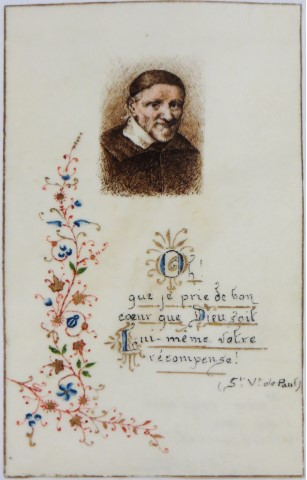 Oh!
que je prie de bon
cœur que Dieu soit
Lui-même votre
récompense!
(St. Vt. de Paul)